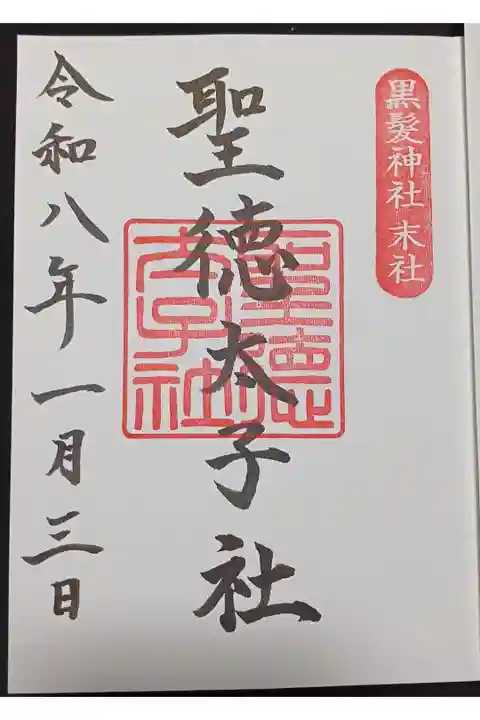 黒髪神社 末社
聖徳太子社
聖徳
太子社
令和八年一月三日